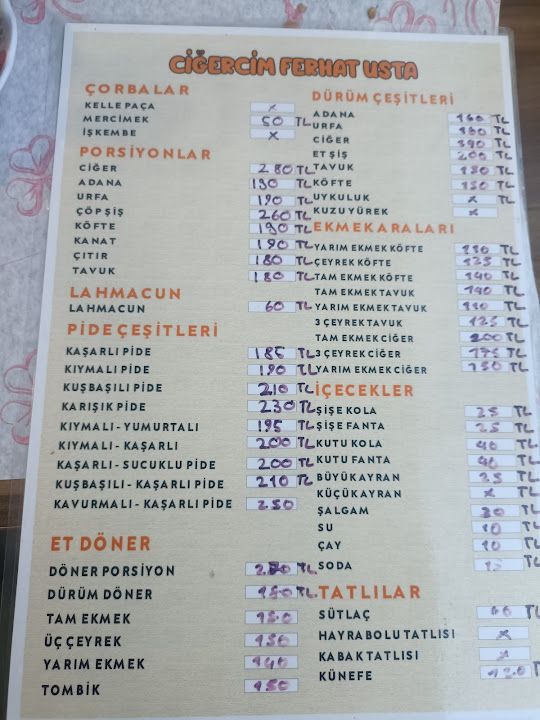 CİĞERCİM FERHAT USTA
ÇORBALAR
KELLE PAÇA x
MERCİMEK 50 TL
İŞKEMBE x
PORSİYONLAR
CİĞER 280 TL
ADANA 190 TL
URFA 190 TL
ÇÖP ŞİŞ 260 TL
KÖFTE 190 TL
KANAT 190 TL
ÇITIR 180 TL
TAVUK 180 TL
LAHMACUN
LAHMACUN 60 TL
PİDE ÇEŞİTLERİ
KAŞARLI PİDE 185 TL
KIYMALI PİDE 190 TL
KUŞBAŞILI PİDE 210 TL
KARIŞIK PİDE 230 TL
KIYMALI - YUMURTALI 195 TL
KIYMALI - KAŞARLI 200 TL
KAŞARLI - SUCUKLU PİDE 200 TL
KUŞBAŞILI - KAŞARLI PİDE 210 TL
KAVURMALI - KAŞARLI PİDE 250
ET DÖNER
DÖNER PORSİYON TL
DÜRÜM DÖNER TL
TAM EKMEK
ÜÇ ÇEYREK 150
YARIM EKMEK 140
TOMBİK 150
DÜRÜM ÇEŞİTLERİ
ADANA 160 TL
URFA 160 TL
CİĞER TL
ET ŞİŞ 200 TL
TAVUK 150 TL
KÖFTE 150 TL
UYKULUK x TL
KUZU YÜREK x
EKMEK ARALARI
YARIM EKMEK KÖFTE TL
ÇEYREK KÖFTE 125 TL
TAM EKMEK KÖFTE 140 TL
TAM EKMEK TAVUK 140 TL
YARIM EKMEK TAVUK 110 TL
3 ÇEYREK TAVUK 125 TL
TAM EKMEK CİĞER 200 TL
3 ÇEYREK CİĞER 175 TL
YARIM EKMEK CİĞER 150 TL
İÇECEKLER
ŞİŞE KOLA 25 TL
ŞİŞE FANTA 25 TL
KUTU KOLA 40 TL
KUTU FANTA 40 TL
BÜYÜK AYRAN 25 TL
KÜÇÜK AYRAN x TL
ŞALGAM 30 TL
SU 10 TL
ÇAY 10 TL
SODA 15 TL
TATLILAR
SÜTLAÇ 60 TL
HAYRABOLU TATLISI x
KABAK TATLISI x
KÜNEFE 120 TL